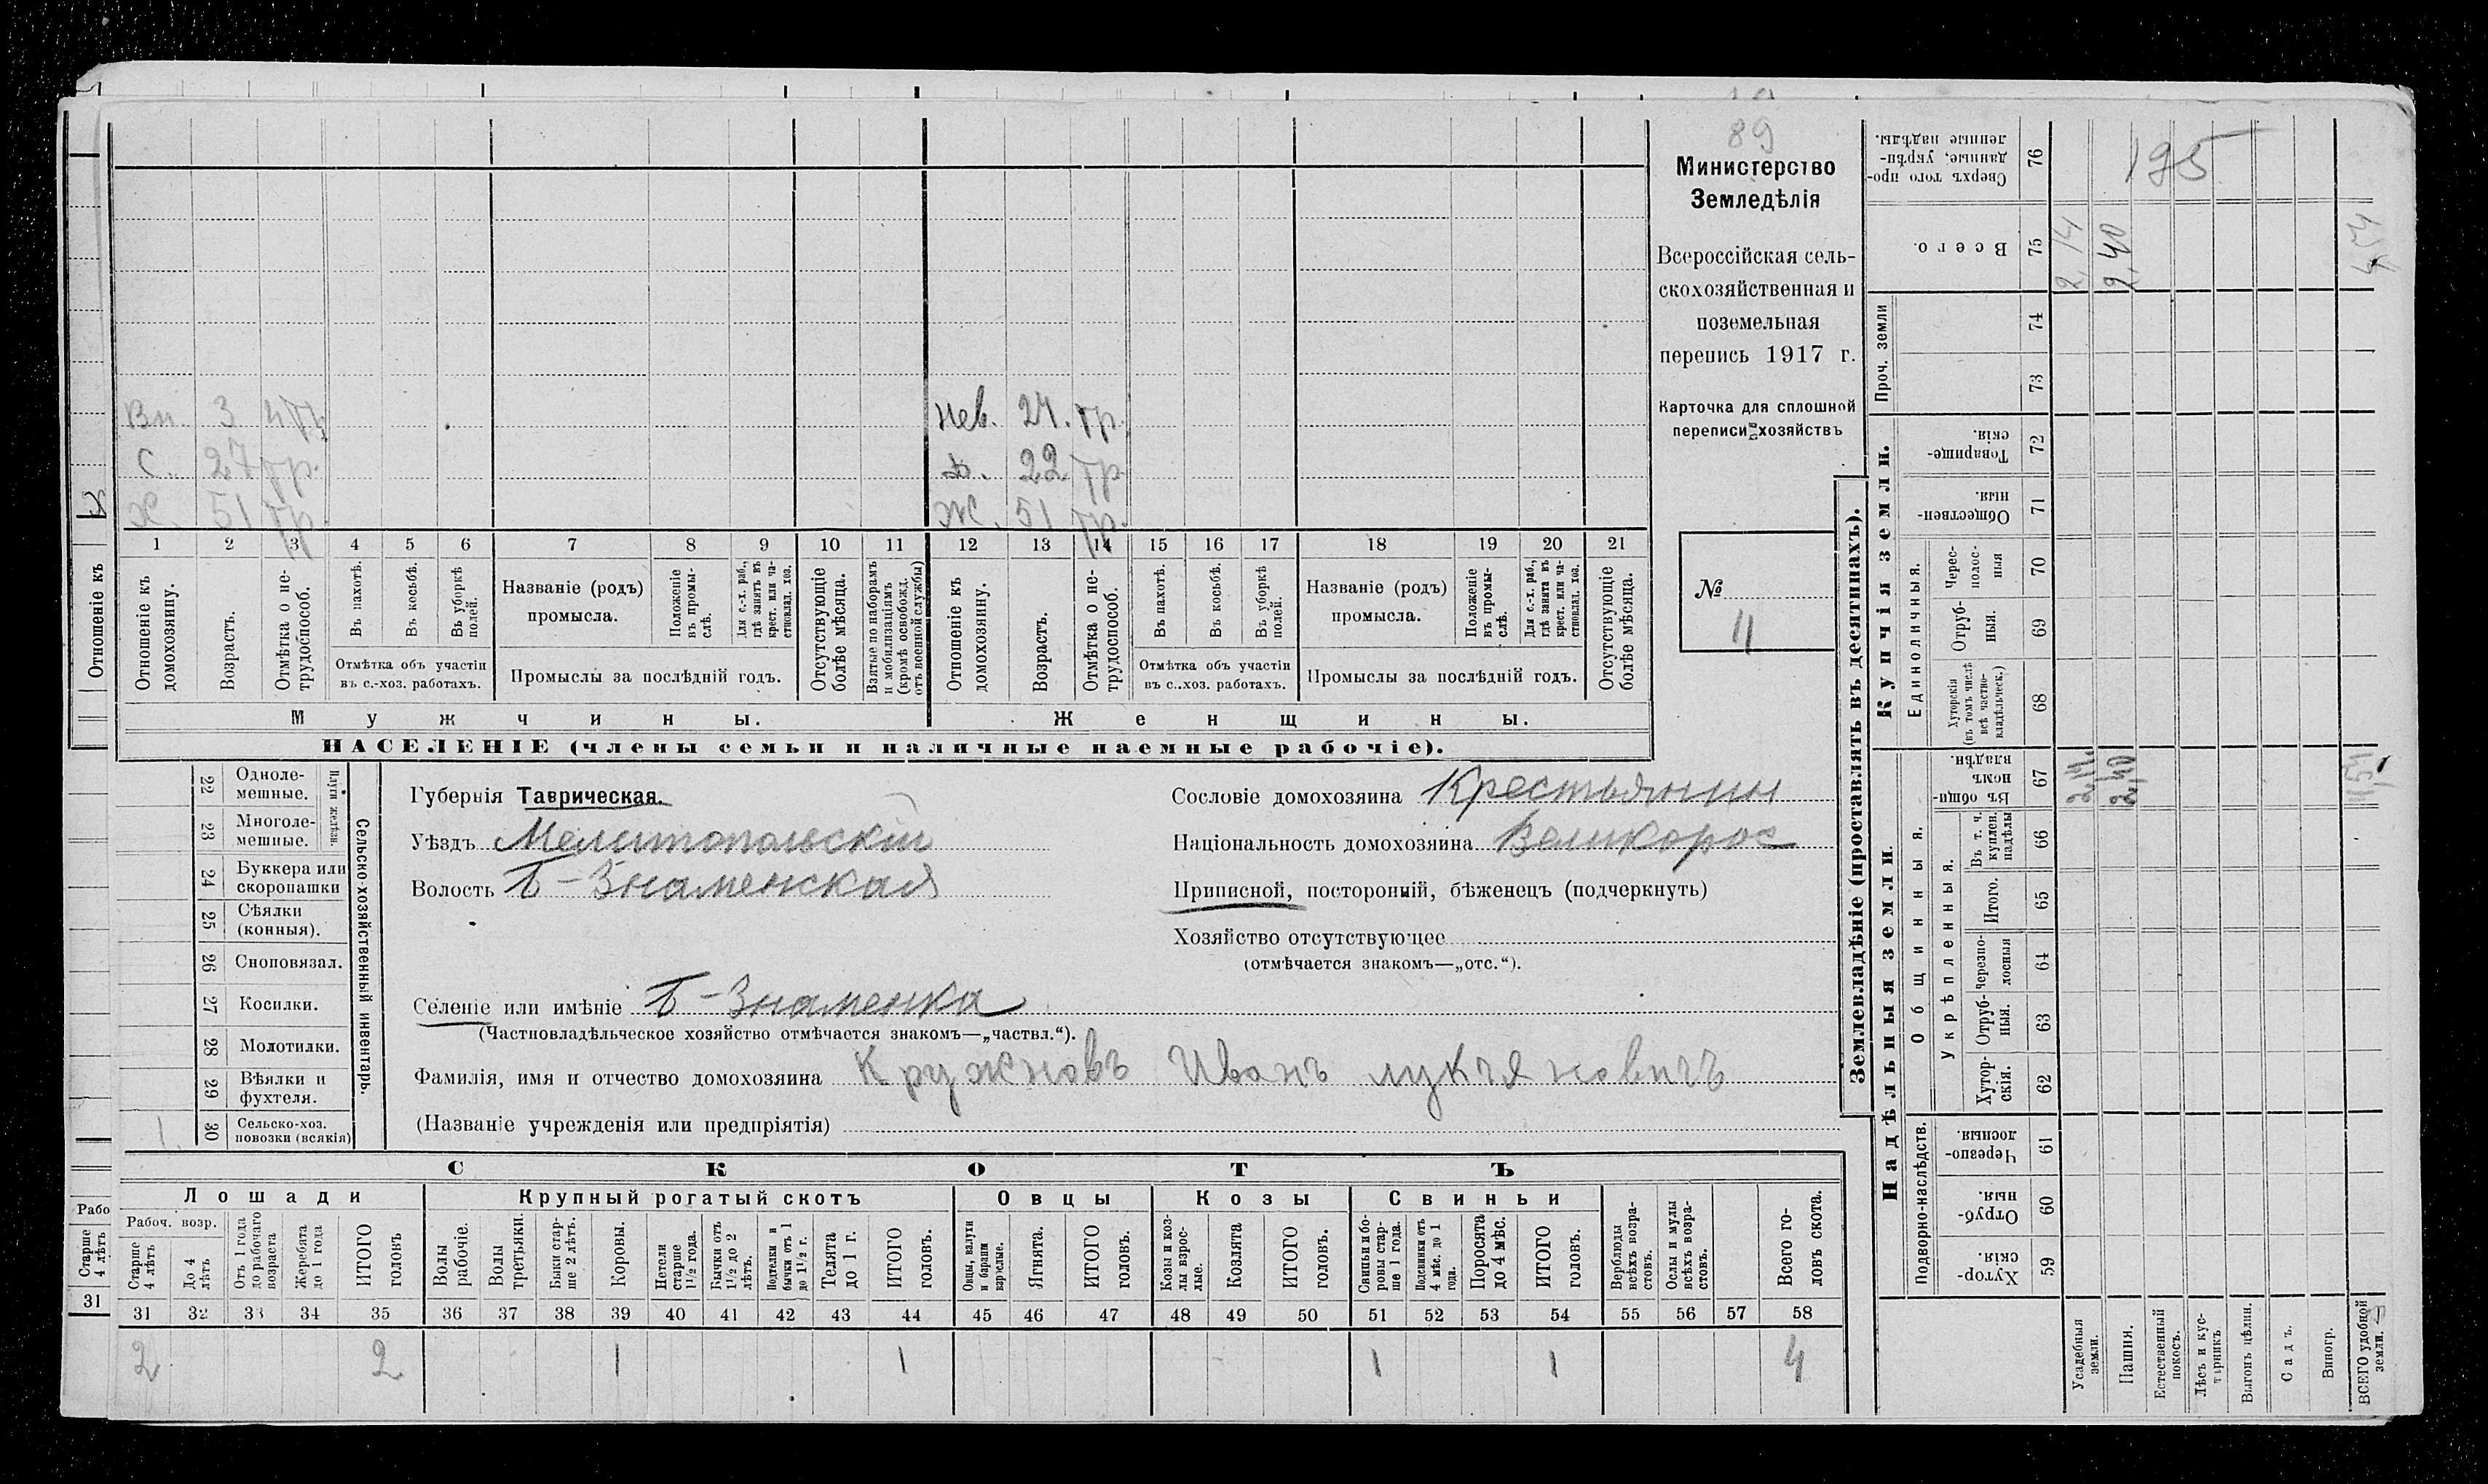 89
Министерство
Земледѣлія
Всероссійская сель-
скохозяйственная и
поземельная
перепись 1917 г.
Карточка для сплошной
переписи хозяйствъ
№
11
Вн. 3 н тр.
С. 27 тр.
Х. 51 тр.
Нев. 24. тр.
Д. 22 тр.
Ж. 51 тр.
1 2 3 4 5 6 7 8 9 10 11 12 13 14 15 16 17 18 19 20 21
Отношеніе къ домохозяину.
Возрастъ.
Отмѣтка о не-трудоспособ.
Въ пахотѣ.
Въ косьбѣ.
Въ уборкѣ полей.
Отмѣтка объ участіи
въ с.-хоз. работахъ.
Названіе (родъ)
промысла.
Положеніе въ промы-слѣ.
Для с.-х. раб., гдѣ занятъ въ крест. или ча-стновлад. хоз.
Промыслы за послѣдній годъ.
Отсутствующіе болѣе мѣсяца.
Взятые по наборамъ и мобилизаціямъ (кромѣ освобожд. отъ военной службы)
Отношеніе къ домохозяину.
Возрастъ.
Отмѣтка о не-трудоспособ.
Въ пахотѣ.
Въ косьбѣ.
Въ уборкѣ полей.
Отмѣтка объ участіи
въ с..хоз. работахъ.
Названіе (родъ)
промысла.
Положеніе въ промы-слѣ.
Для с.-х. раб., гдѣ занята въ крест. или ча-стновлад. хоз.
Промыслы за послѣдній годъ.
Отсутствующіе болѣе мѣсяца.
Мужчины.
Женщины.
НАСЕЛЕНІЕ (члены семьи и наличные наемные рабочіе).
Отношеніе къ
Х
22 Одноле-мешные.
23 Многоле-мешные.
Плуги желѣзн.
24 Буккера или скоропашки
25 Сѣялки (конныя).
26 Сноповязал.
27 Косилки.
28 Молотилки.
29 Вѣялки и фухтеля.
30 Сельско-хоз. повозки (всякія)
1.
Сельско-хозяйственный инвентарь.
Губернія Таврическая.
Уѣздъ Мелитопольскій
Волость Б-Знаменская
Селеніе или имѣніе Б-Знаменка
(Частновладѣльческое хозяйство отмѣчается знакомъ—„частвл.“).
Фамилія, имя и отчество домохозяина Кружновъ Иванъ лукъяновичъ
(Названіе учрежденія или предпріятія)
Сословіе домохозяина Крестьянин
Національность домохозяина Великорос
Приписной, посторонній, бѣженецъ (подчеркнуть)
Хозяйство отсутствующее
(отмѣчается знакомъ—„отс.“).
СКОТЪ
Лошади
Крупный рогатый скотъ
Овцы
Козы
Свиньи
Рабоч. возр.
Старше 4 лѣтъ
До 4 лѣтъ
Отъ 1 года до рабочаго возраста
Жеребята до 1 года
ИТОГО головъ
Волы рабочіе.
Волы третьяки.
Быки стар-ше 2 лѣтъ.
Коровы.
Нетели старше 1½ года.
Бычки отъ 1½ до 2 лѣтъ.
Подтелки и бычки отъ 1 до 1½ г.
Телята до 1 г.
ИТОГО головъ.
Овцы, валухи и бараны взрослые.
Ягнята.
ИТОГО головъ.
Козы и коз-лы взрос-лые.
Козлята
ИТОГО головъ.
Свиньи и бо-ровы стар-ше 1 года.
Подсвинки отъ 4 мѣс. до 1 года.
Поросята до 4 мѣс.
ИТОГО головъ.
Верблюды всѣхъ возра-стовъ.
Ослы и мулы всѣхъ возра-стовъ.
Всего го-ловъ скота.
31 32 33 34 35 36 37 38 39 40 41 42 43 44 45 46 47 48 49 50 51 52 53 54 55 56 57 58
2 2 1 1 1 1 4
Рабо
Старше 4 лѣтъ
31
Землевладѣніе (проставлять въ десятинахъ).
Надѣльныя земли.
Купчія земли.
Проч. земли
Подворно-наслѣдств.
Общинныя.
Укрѣпленныя.
Единоличныя.
Сверхъ того про-данные, укрѣп-ленные надѣлы. 76
Всего. 75
74
73
Товарище-скія. 72
Обществен-ныя. 71
Черес-полос-ныя 70
Отруб-ныя. 69
Хуторскія (въ томъ числѣ всѣ частно-владѣльческ.) 68
Въ общи-номъ владѣн. 67
Въ т. ч. куплен. надѣлы 66
Итого. 65
Черезпо-лосныя 64
Отруб-ныя. 63
Хутор-скія. 62
Черезпо-лосныя. 61
Отруб-ныя. 60
Хутор-скія. 59
Усадебныя земли.
Пашня.
Естественный покосъ.
Лѣсъ и кус-тарникъ
Выгонъ цѣлин.
Садъ.
Виногр.
ВСЕГО удобной земли.
195
2,14
2,40
4,54
2,14.
2,40
4,54